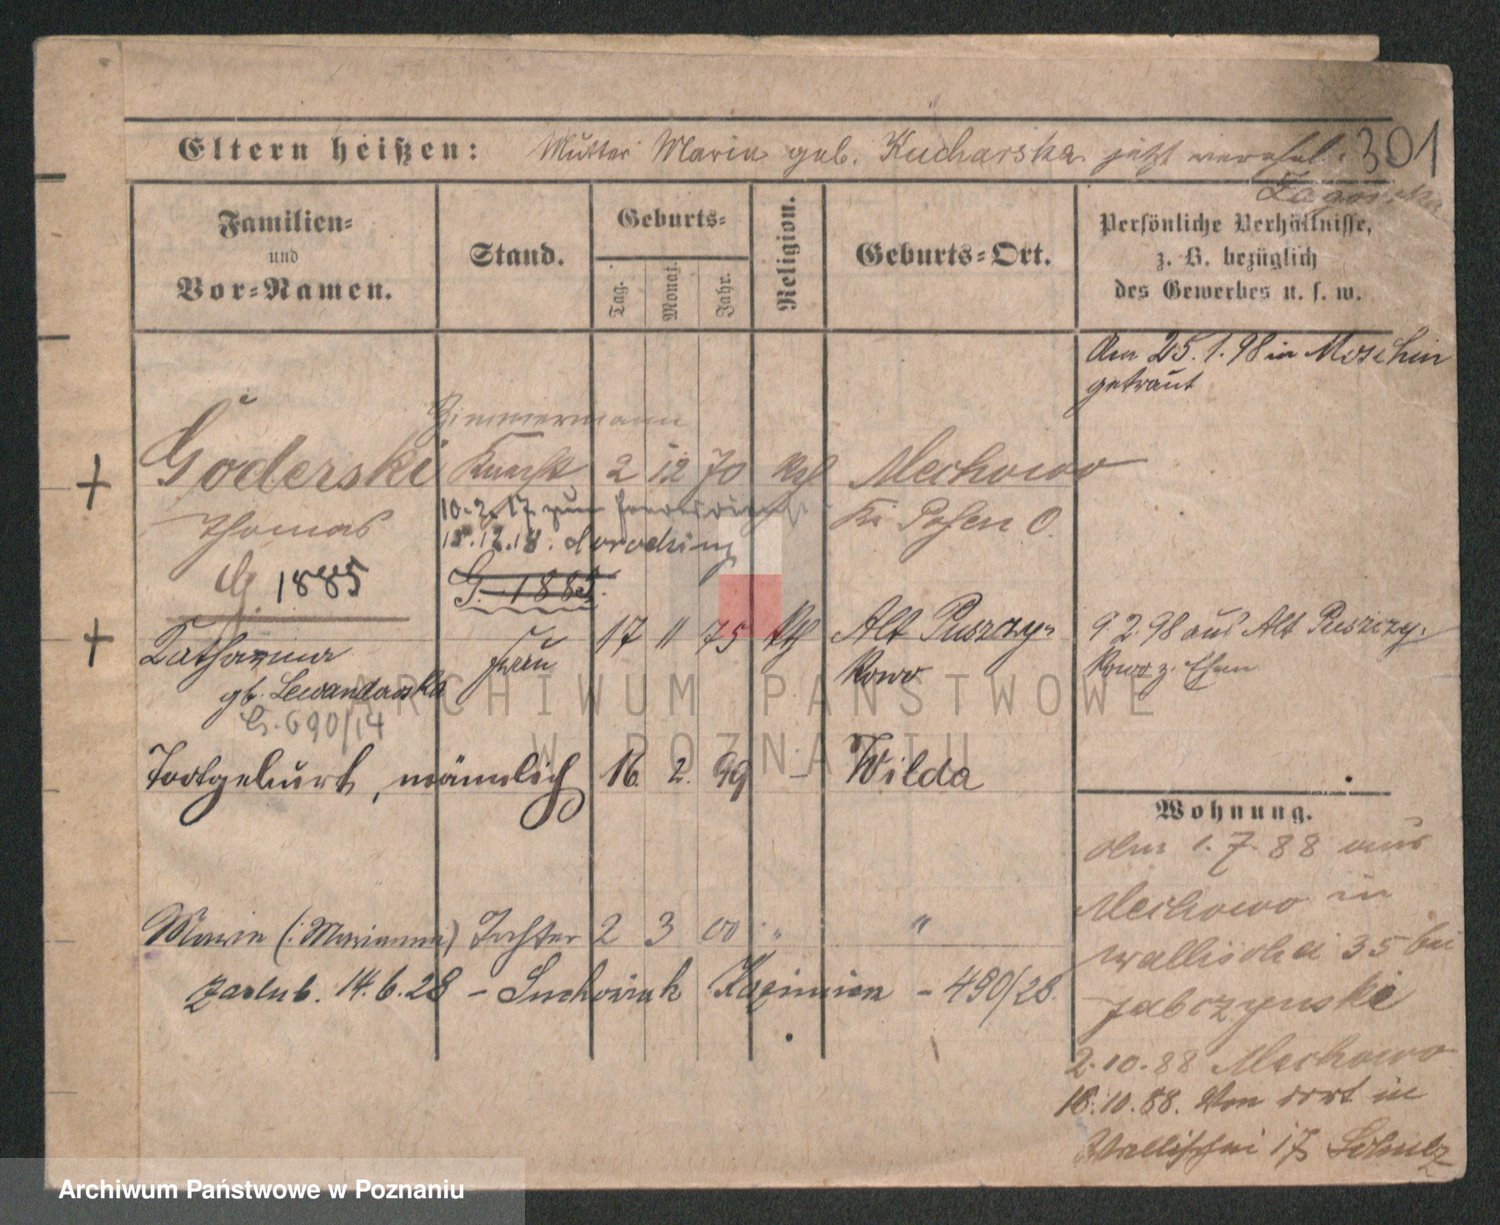 Eltern heißen: Mutter Maria geb. Kucharska jetzt verehel. 301
Zagorska
Familien=
und
Vor=Namen.
Stand.
Geburts=
Tag.
Monat.
Jahr.
Religion.
Geburts=Ort.
Persönliche Verhältnisse,
z. B. bezüglich
des Gewerbes u. s. w.
Am 25.1.98 in Moschin
getraut
Zimmermann
+ Goderski Knecht 2 12 70 kth Mechowo
10.2.17 zum Heeresdienst
Thomas Kr. Posen O.
18.12.18.
G. 1885
G. 1885.
+ Katharina Frau 17 11 75 kth Alt Puszczy=
kowo
gb. Lewandowska
9 2.98 aus Alt Puszczy-
kowo z. Ehem
G. 690/14
Todtgeburt, männlich 16. 2. 99 – Wilda
Marie (: Marianna) Tochter 2 3 00 " "
zaślub. 14.6.28 – Suchowiak Kazimierz – 490/28.
Wohnung.
Am 1.7.88 aus
Mechowo in
Wallischei 35 bei
Jabczynski
2.10.88 Mechowo
18.10.88. Von dort in
Wallischei 17 Schulz
ARCHIWUM PAŃSTWOWE
W POZNANIU
Archiwum Państwowe w Poznaniu